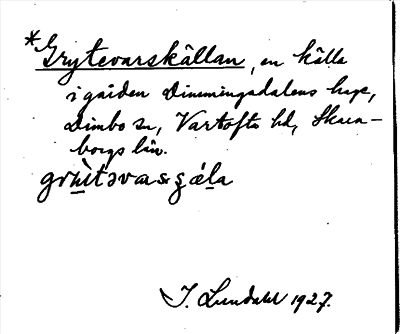 *Grytevarskällan, en källa
i gården Dimmingsdalens hage,
Dimbo sn, Vartofta hd, Skara-
borgs län.
J. Lundahl 1927.